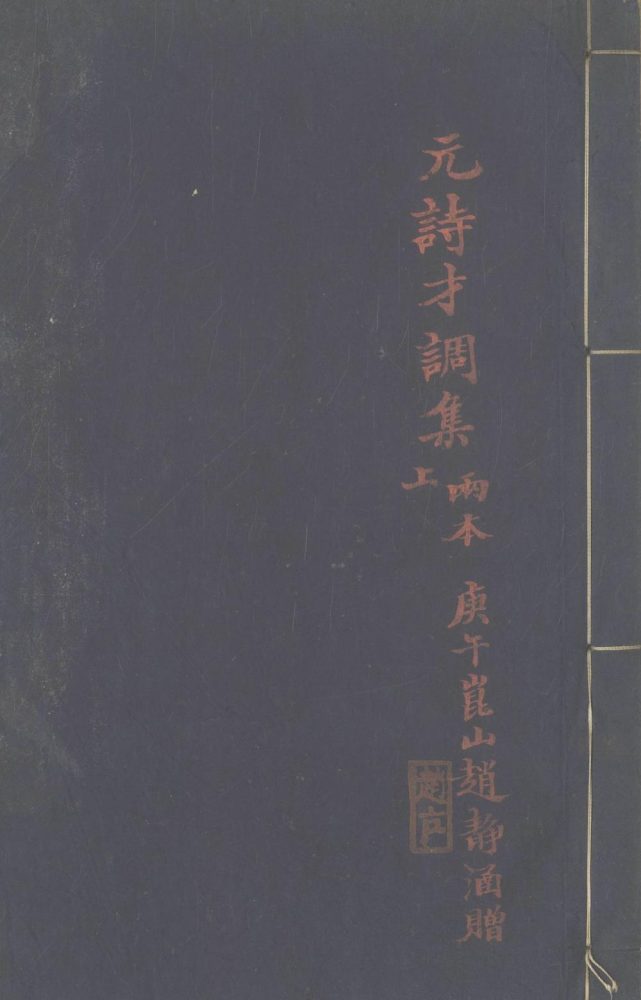 元詩才調集
兩本
上
庚午崑山趙靜涵贈